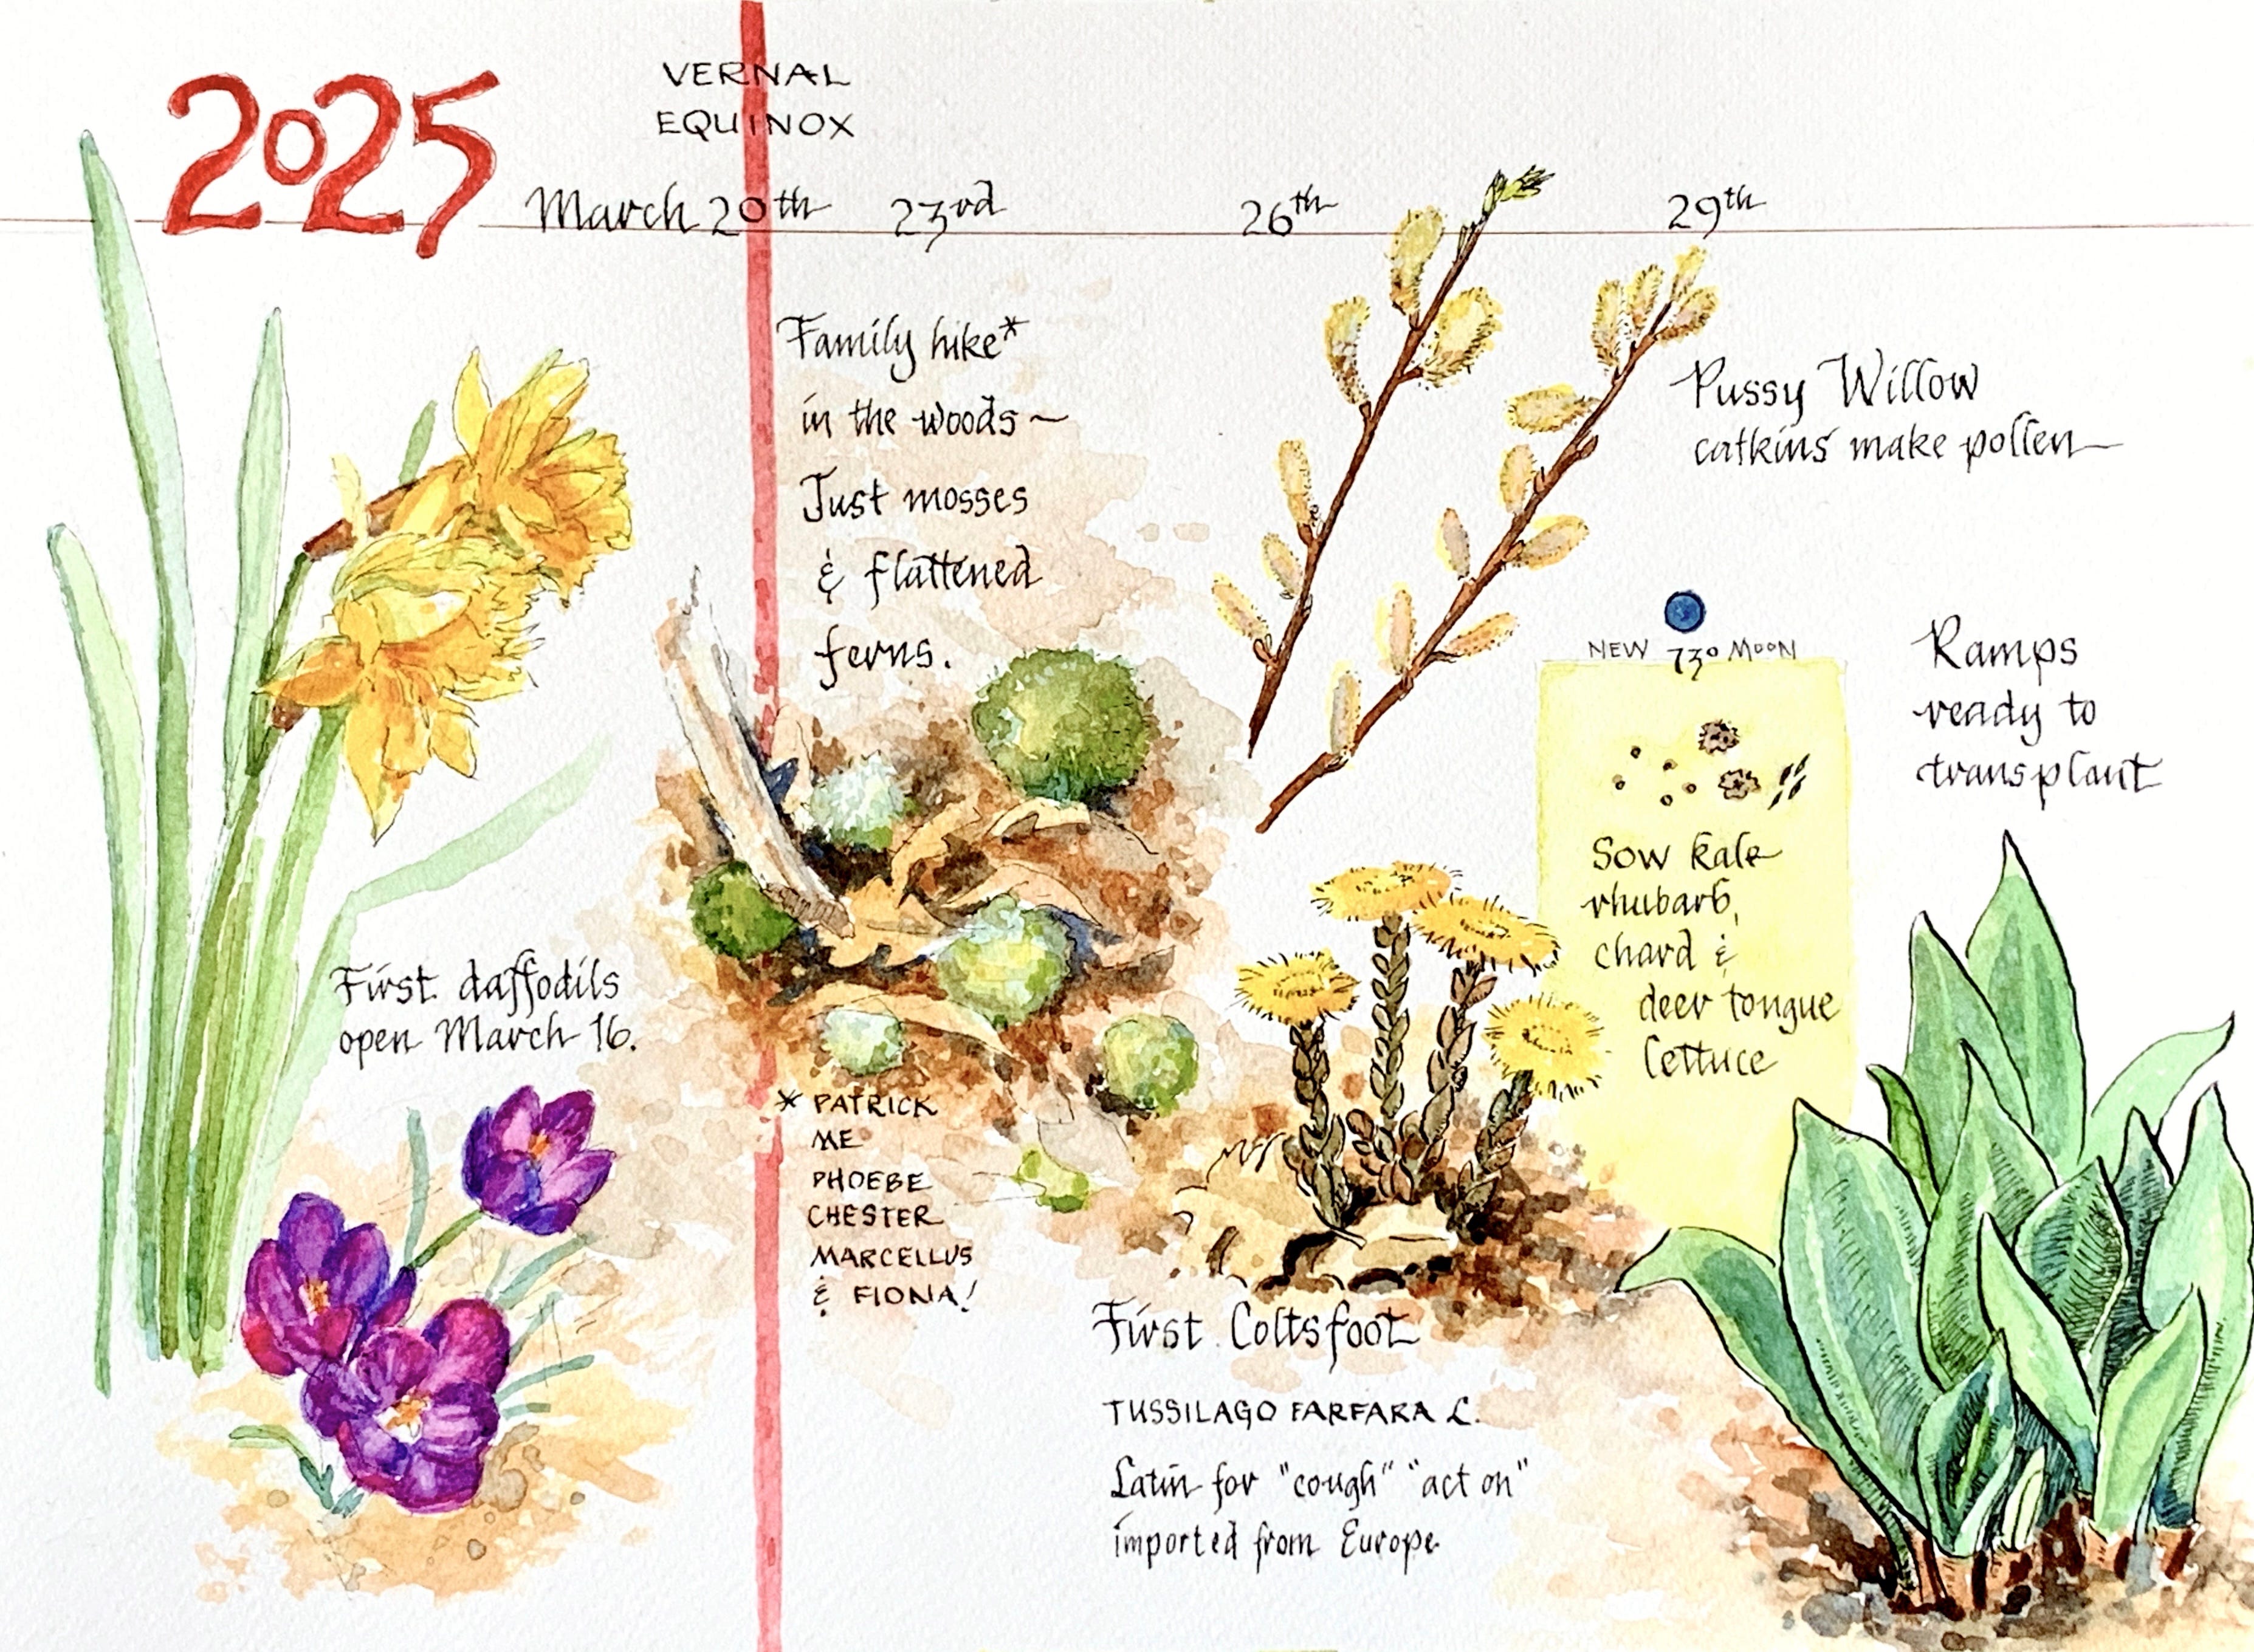 2025
VERNAL
EQUINOX
March 20th 23rd 26th 29th
First daffodils
open March 16.
Family hike*
in the woods ~
Just mosses
& flattened
ferns.
* PATRICK
ME
PHOEBE
CHESTER
MARCELLUS
& FIONA!
Pussy Willow
catkins make pollen
NEW 73° MOON
Sow kale
rhubarb,
chard &
deer tongue
lettuce
Ramps
ready to
transplant
First Coltsfoot
TUSSILAGO FARFARA L.
Latin for "cough" "act on"
imported from Europe